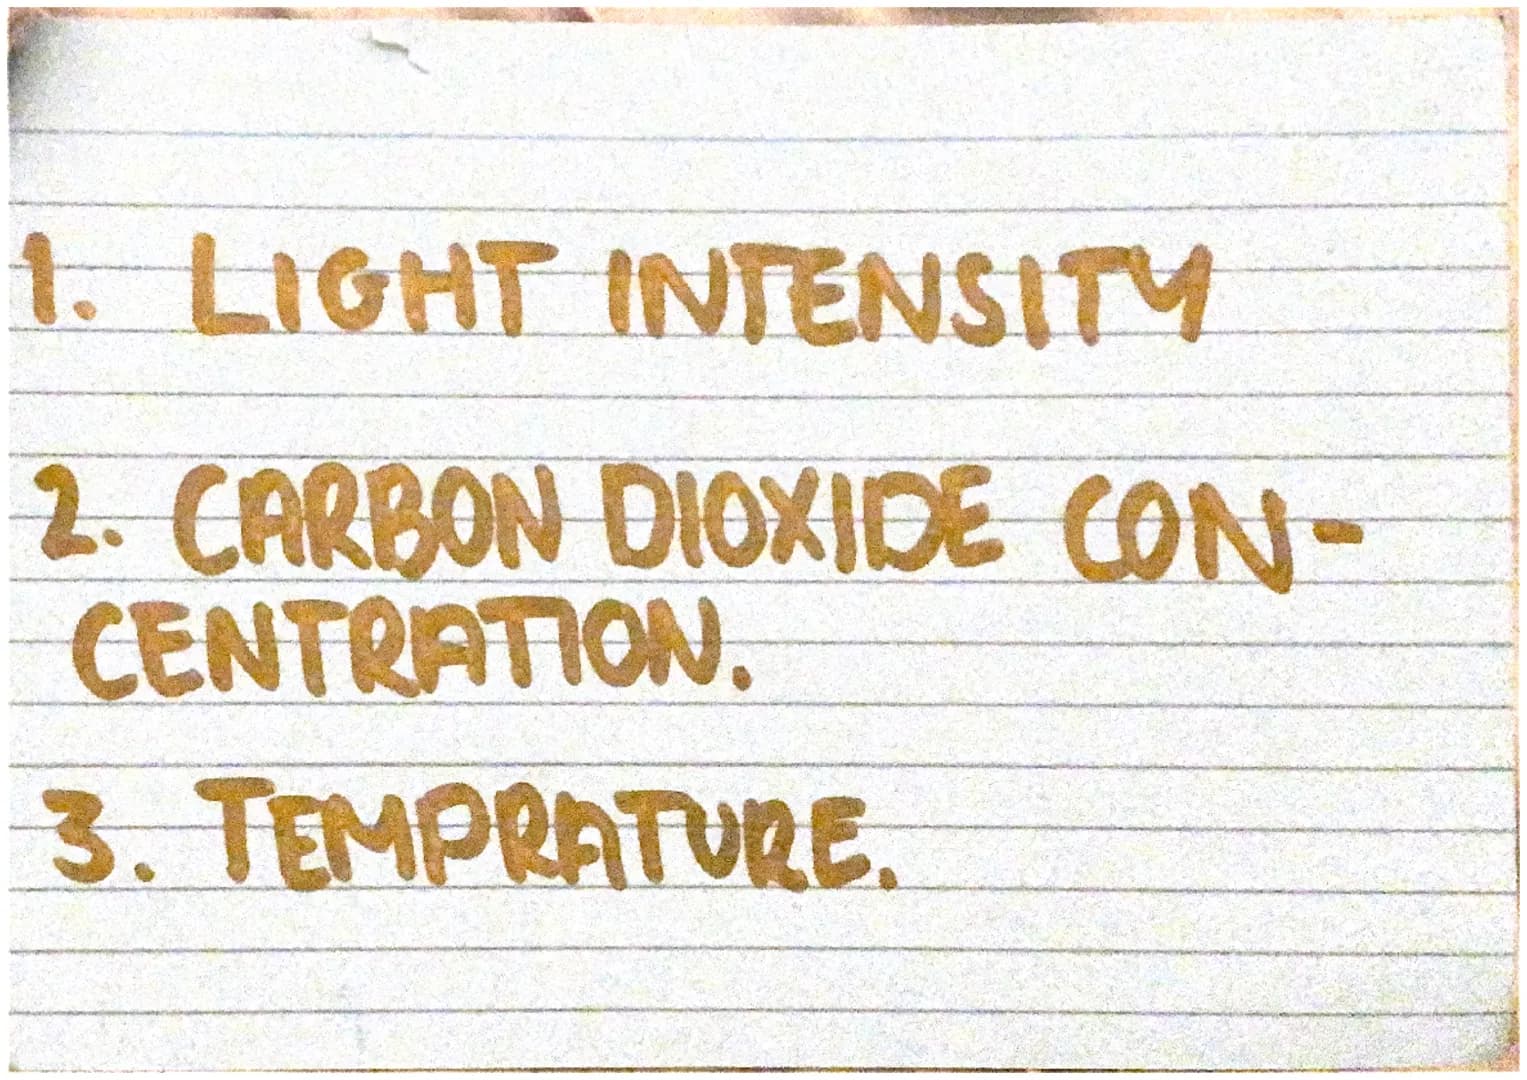 1. LIGHT INTENSITY
2. CARBON DIOXIDE CON-
CENTRATION.
3. TEMPRATURE.